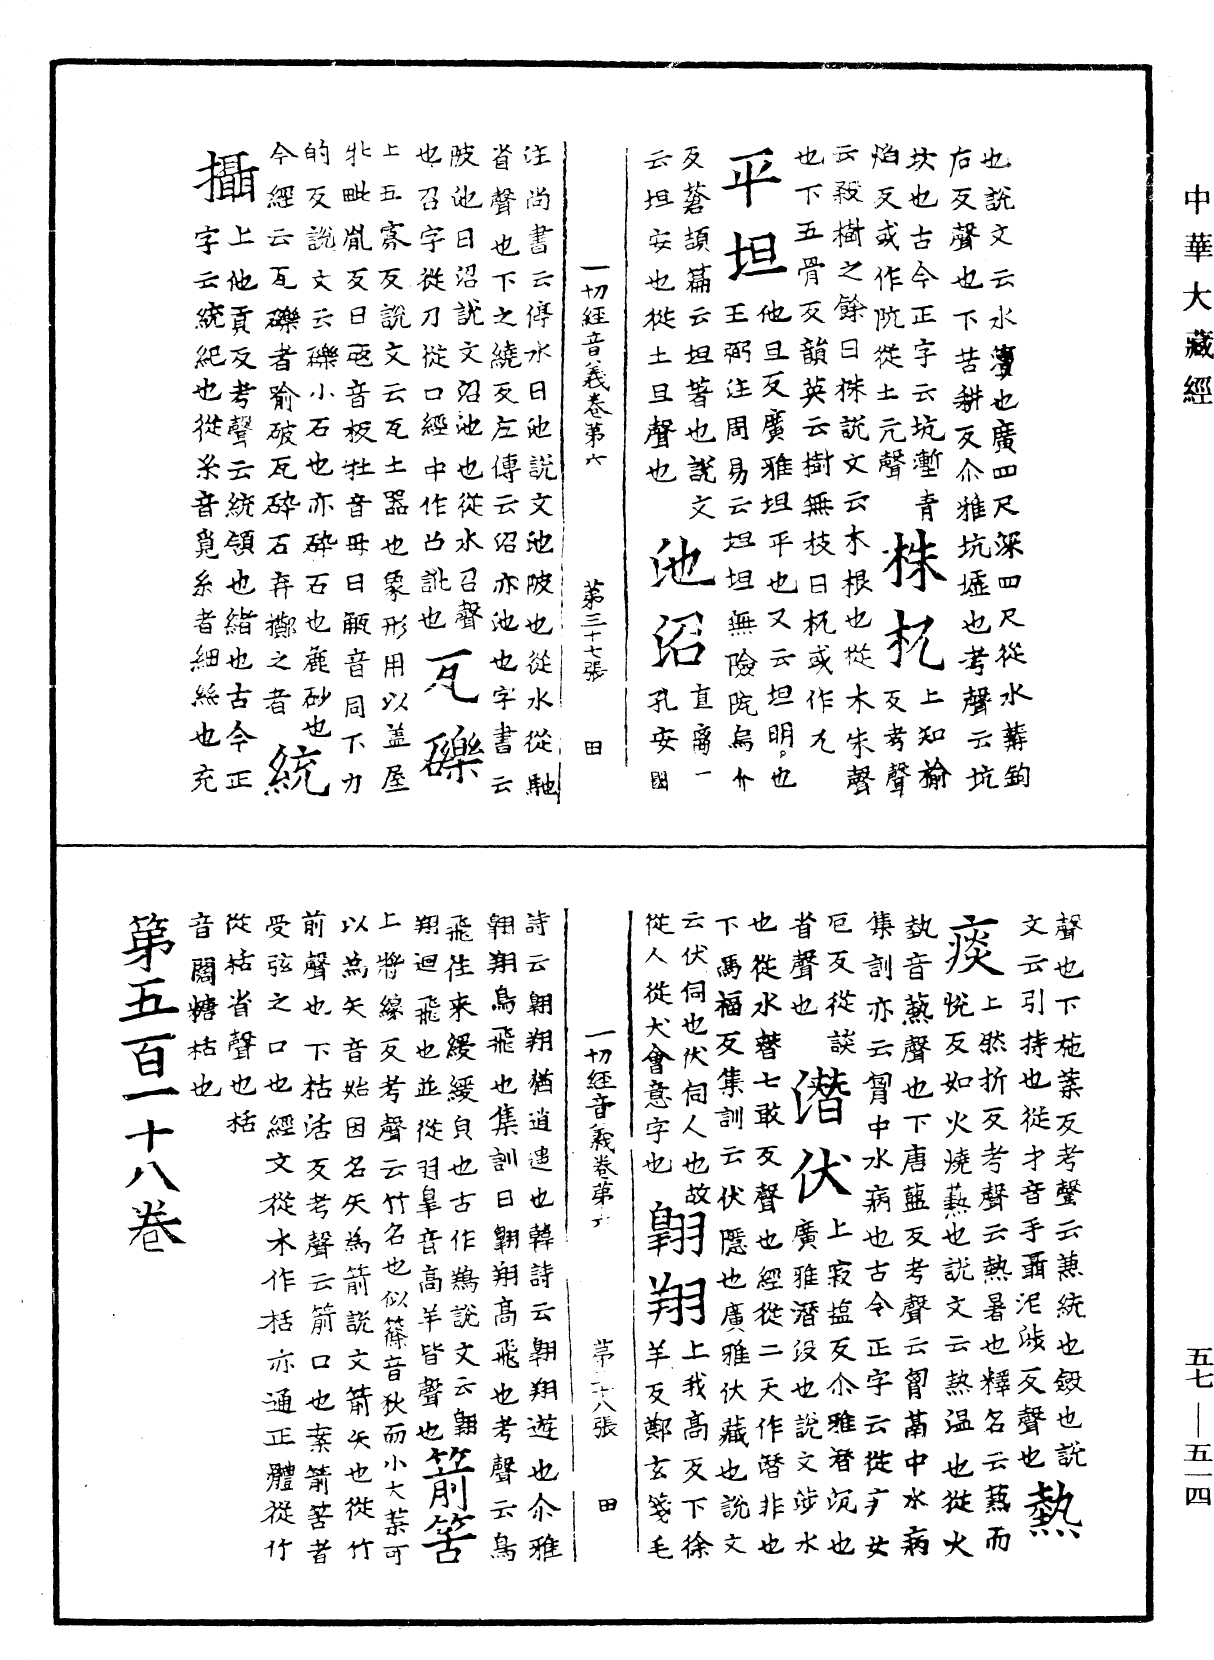 中華大藏經
也說文云水瀆也廣四尺深四尺從水冓鉤
右反聲也下苦耕反尒雅坑墟也考聲云坑
坎也古今正字云坑塹青
焰反或作阬從土亢聲
株杌
上知榆
反考聲
云殺樹之餘曰株說文云木根也從木朱聲
也下五骨反韻英云樹無枝曰杌或作兀
平坦
他旦反廣雅坦平也又云坦明也
王弼注周易云坦坦無險阨烏介
反蒼頡篇云坦著也說文
云坦安也從土旦聲也
池沼
直离一
孔安國
一切經音義卷第六 第三十七張 田
注尚書云停水曰池說文池陂也從水從馳
省聲也下之繞反左傳云沼亦池也字書云
陂池曰沼說文沼池也從水召聲
也召字從刀從口經中作凸訛也
瓦礫
上五寡反說文云瓦土器也象形用以蓋屋
牝毗胤反曰㼝音板牡音母曰㼧音同下力
的反說文云礫小石也亦碎石也麁砂也
今經云瓦礫者喻破瓦碎石弃擲之者
統攝
上他貢反考聲云統領也緒也古今正
字云統紀也從糸音覓糸者細絲也充
聲也下施葉反考聲云兼統也錄也說
文云引持也從才音手聶泥涉反聲也
熱痰
上然折反考聲云熱暑也釋名云爇而
悅反如火燒爇也說文云熱温也從火
埶音藝聲也下唐藍反考聲云胷鬲中水病
集訓亦云胷中水病也古今正字云從疒女
厄反從談
省聲也
潛伏
上寂塩反尒雅潛沉也
廣雅潛没也說文涉水
也從水朁七敢反聲也經從二天作潛非也
下馮福反集訓云伏隱也廣雅伏藏也說文
云伏伺也伏伺人也故
從人從犬會意字也
翺翔
上我高反下徐
羊反鄭玄箋毛
一切經音義卷第六 第三十八張 田
詩云翺翔猶逍遥也韓詩云翺翔遊也尒雅
翺翔鳥飛也集訓曰翺翔高飛也考聲云鳥
飛往來緩緩皃也古作鷎說文云翺
翔迴飛也並從羽皐音高羊皆聲也
箭筈
上將線反考聲云竹名也似篠音狄而小大葉可
以為矢音始因名矢為箭說文箭矢也從竹
前聲也下枯活反考聲云箭口也案箭筈者
受弦之口也經文從木作栝亦通正體從竹
從栝省聲也栝
音閻糖枯也
第五百一十八卷
五七—五一四